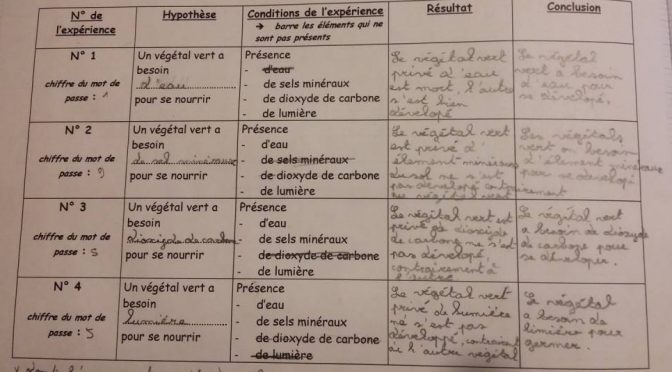 N° de l'expérience
Hypothèse
Conditions de l'expérience
→ barre les éléments qui ne sont pas présents
Résultat
Conclusion
N° 1
chiffre du mot de passe : 1
Un végétal vert a
besoin
d'eau
pour se nourrir
Présence
- d'eau
- de sels minéraux
- de dioxyde de carbone
- de lumière
Le végétal vert
privé d'eau
est mort, l'autre
s'est bien
dévelopé
Le végétal
vert a besoin
d'eau pour
se dévelopé.
N° 2
chiffre du mot de passe : 9
Un végétal vert a
besoin
de sel minéraux
pour se nourrir
Présence
- d'eau
- de sels minéraux
- de dioxyde de carbone
- de lumière
Le végétal vert
est privé d'
élément minéraux
du sol ne s'est
pas dévelopé contrairement
au végétal vert
Les végétals
vert on besoin
d'élément minéraux
par se dévelopé
N° 3
chiffre du mot de passe : 5
Un végétal vert a
besoin
dioxigde de carbone
pour se nourrir
Présence
- d'eau
- de sels minéraux
- de dioxyde de carbone
- de lumière
Le végital vert est
privé de dioxide
de carbone ne s'est
pas dévelopé,
contrairement à
l'autre
Le végital vert
a besoin de dioxyde
de carboze pour
se déveloper.
N° 4
chiffre du mot de passe : 5
Un végétal vert a
besoin
lumière
pour se nourrir
Présence
- d'eau
- de sels minéraux
- de dioxyde de carbone
- de lumière
Le végétal vert
privé de lumière
ne s'est pas
développé, contrairement
à l'autre végétal
Le végétal
a besoin de
limière pour
germer.